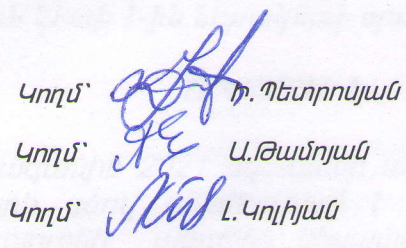 Կողմ՝ Ի. Պետրոսյան
Կողմ՝ Ա.Թամոյան
Կողմ՝ Լ.Կոլիյան